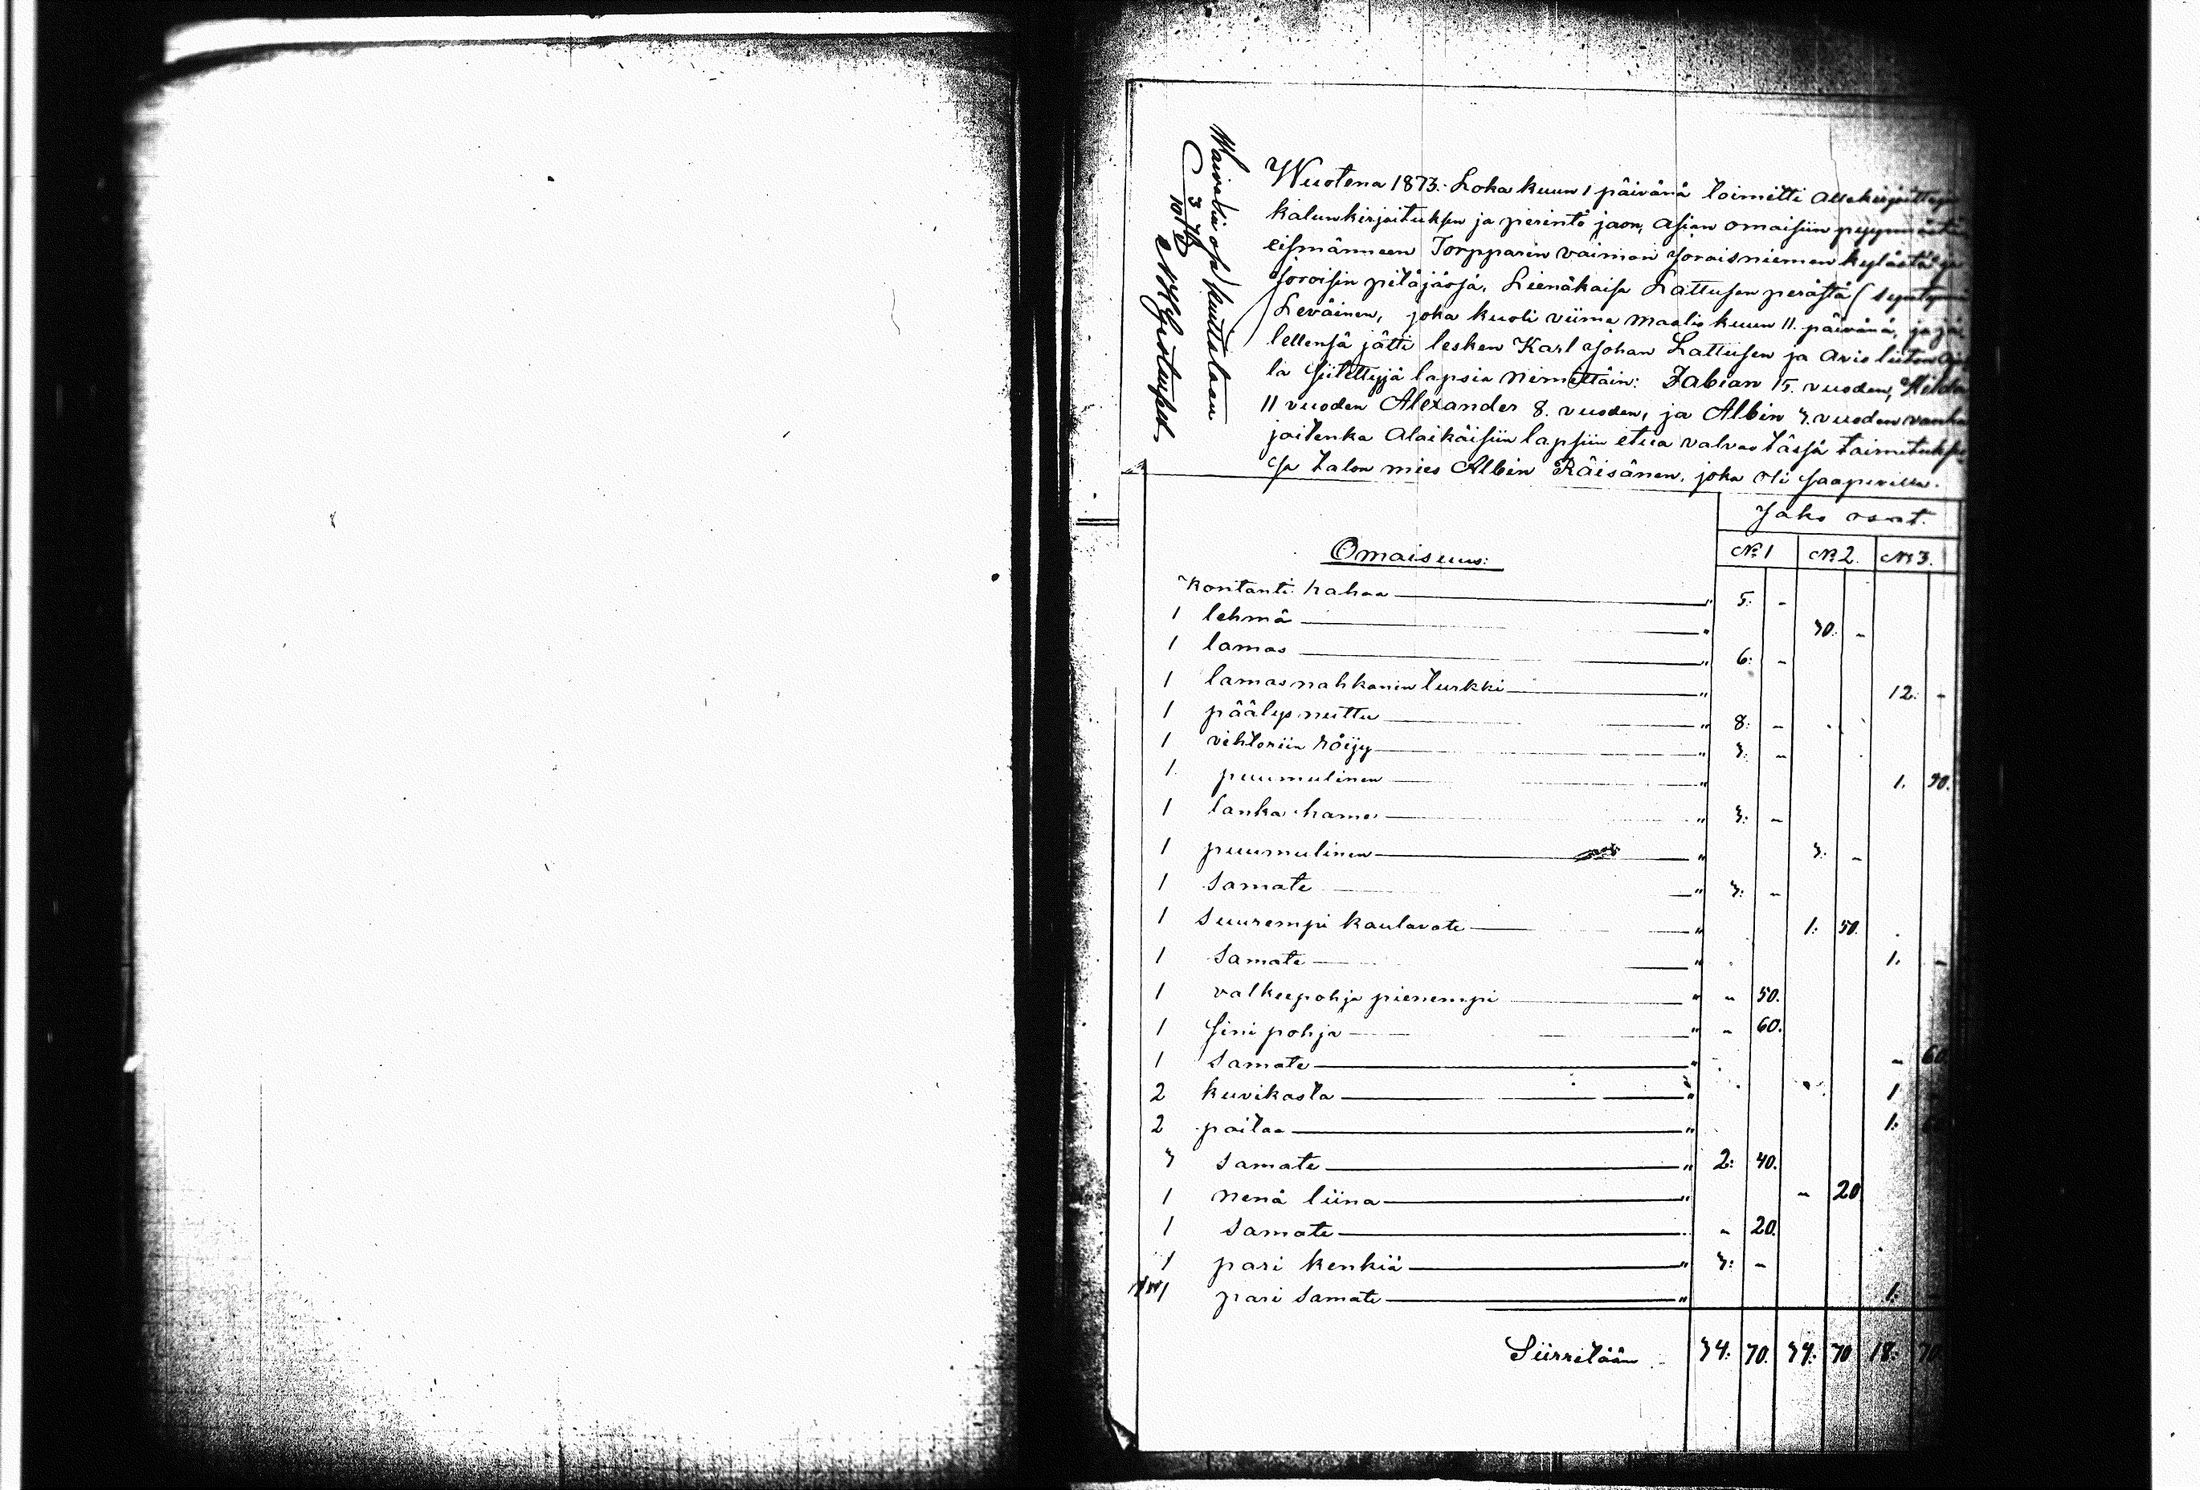 Wuotena 1873. Loka kuun 1 päivänä toimitti allekirjoittaja
kalunkirjoituksen ja perintö jaon, asian omaisiin pyynnöstä
eismänneen Torpparin vaimon Joroisniemen kylästä ja
Joroisin pitäjässä, Leenäkaisa Lattusen perästä (
Leväinen, joka kuoli viime Maalis kuun 11. päivänä, ja jä-
lellensä jätti lesken Karl Johan Lattusen ja Avio
la siitettyjä lapsia Nimittäin: Fabian 15. vuoden, Hilda
11 vuoden Alexander 8. vuoden, ja Albin 3. vuoden vanha
joitenka Alaikäisiin lapsiin etua valvoo tässä toimitukse
sa talon mies Albin Räisänen, joka oli saapuvilla.
Jako osat.
Omaisuus: No 1 No 2. No 3.
Kontanti rahaa " 5: -
1 lehmä " 30: -
1 lamas " 6: -
1 lamasnahkanen turkki " 12: -
1 päälys nuttu " 8: -
1 vihtoriin röijy " 3: -
1 puumulinen " 1. 30.
1 lanka hame " 3: -
1 puumulinen " 3: -
1 samate " 3: -
1 suurempi kaulavate " 1: 50.
1 samate " 1. -
1 valkeepohja pienempi " - 50.
1 sini pohja " - 60.
1 samate " - 60
2 kuvikasta " 1
2 paitaa " 1:
3 samate " 2: 40.
1 nenä liina " - 20
1 samate - 20.
1 pari kenkiä " 3: -
1 pari samate " 1:
Siirretään 34: 70. 34: 70 18: 70